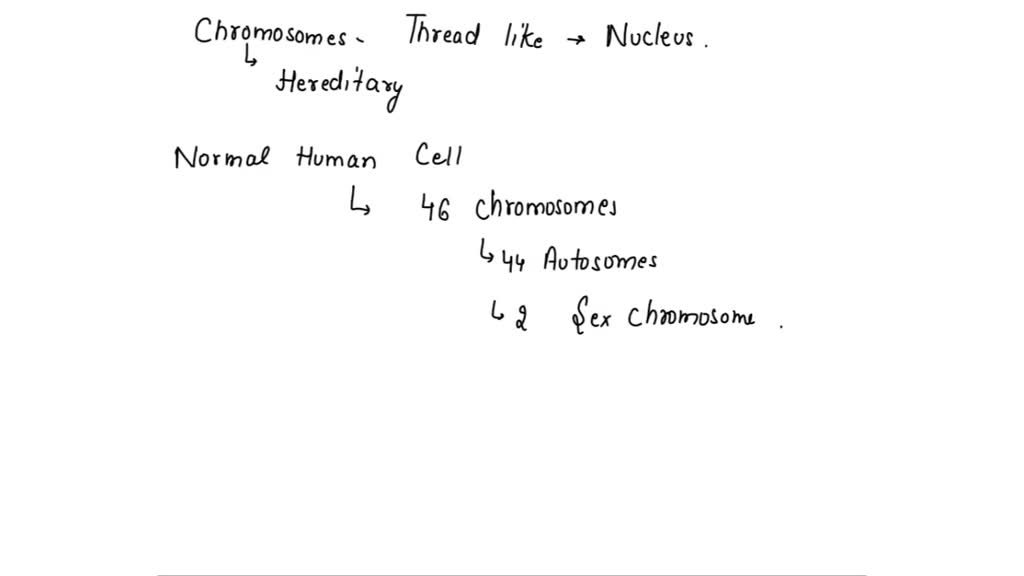 Chromosomes - Thread like → Nucleus.
↳ Hereditary
Normal Human Cell
↳ 46 chromosomes
↳ 44 Autosomes
↳ 2 Sex chromosome.